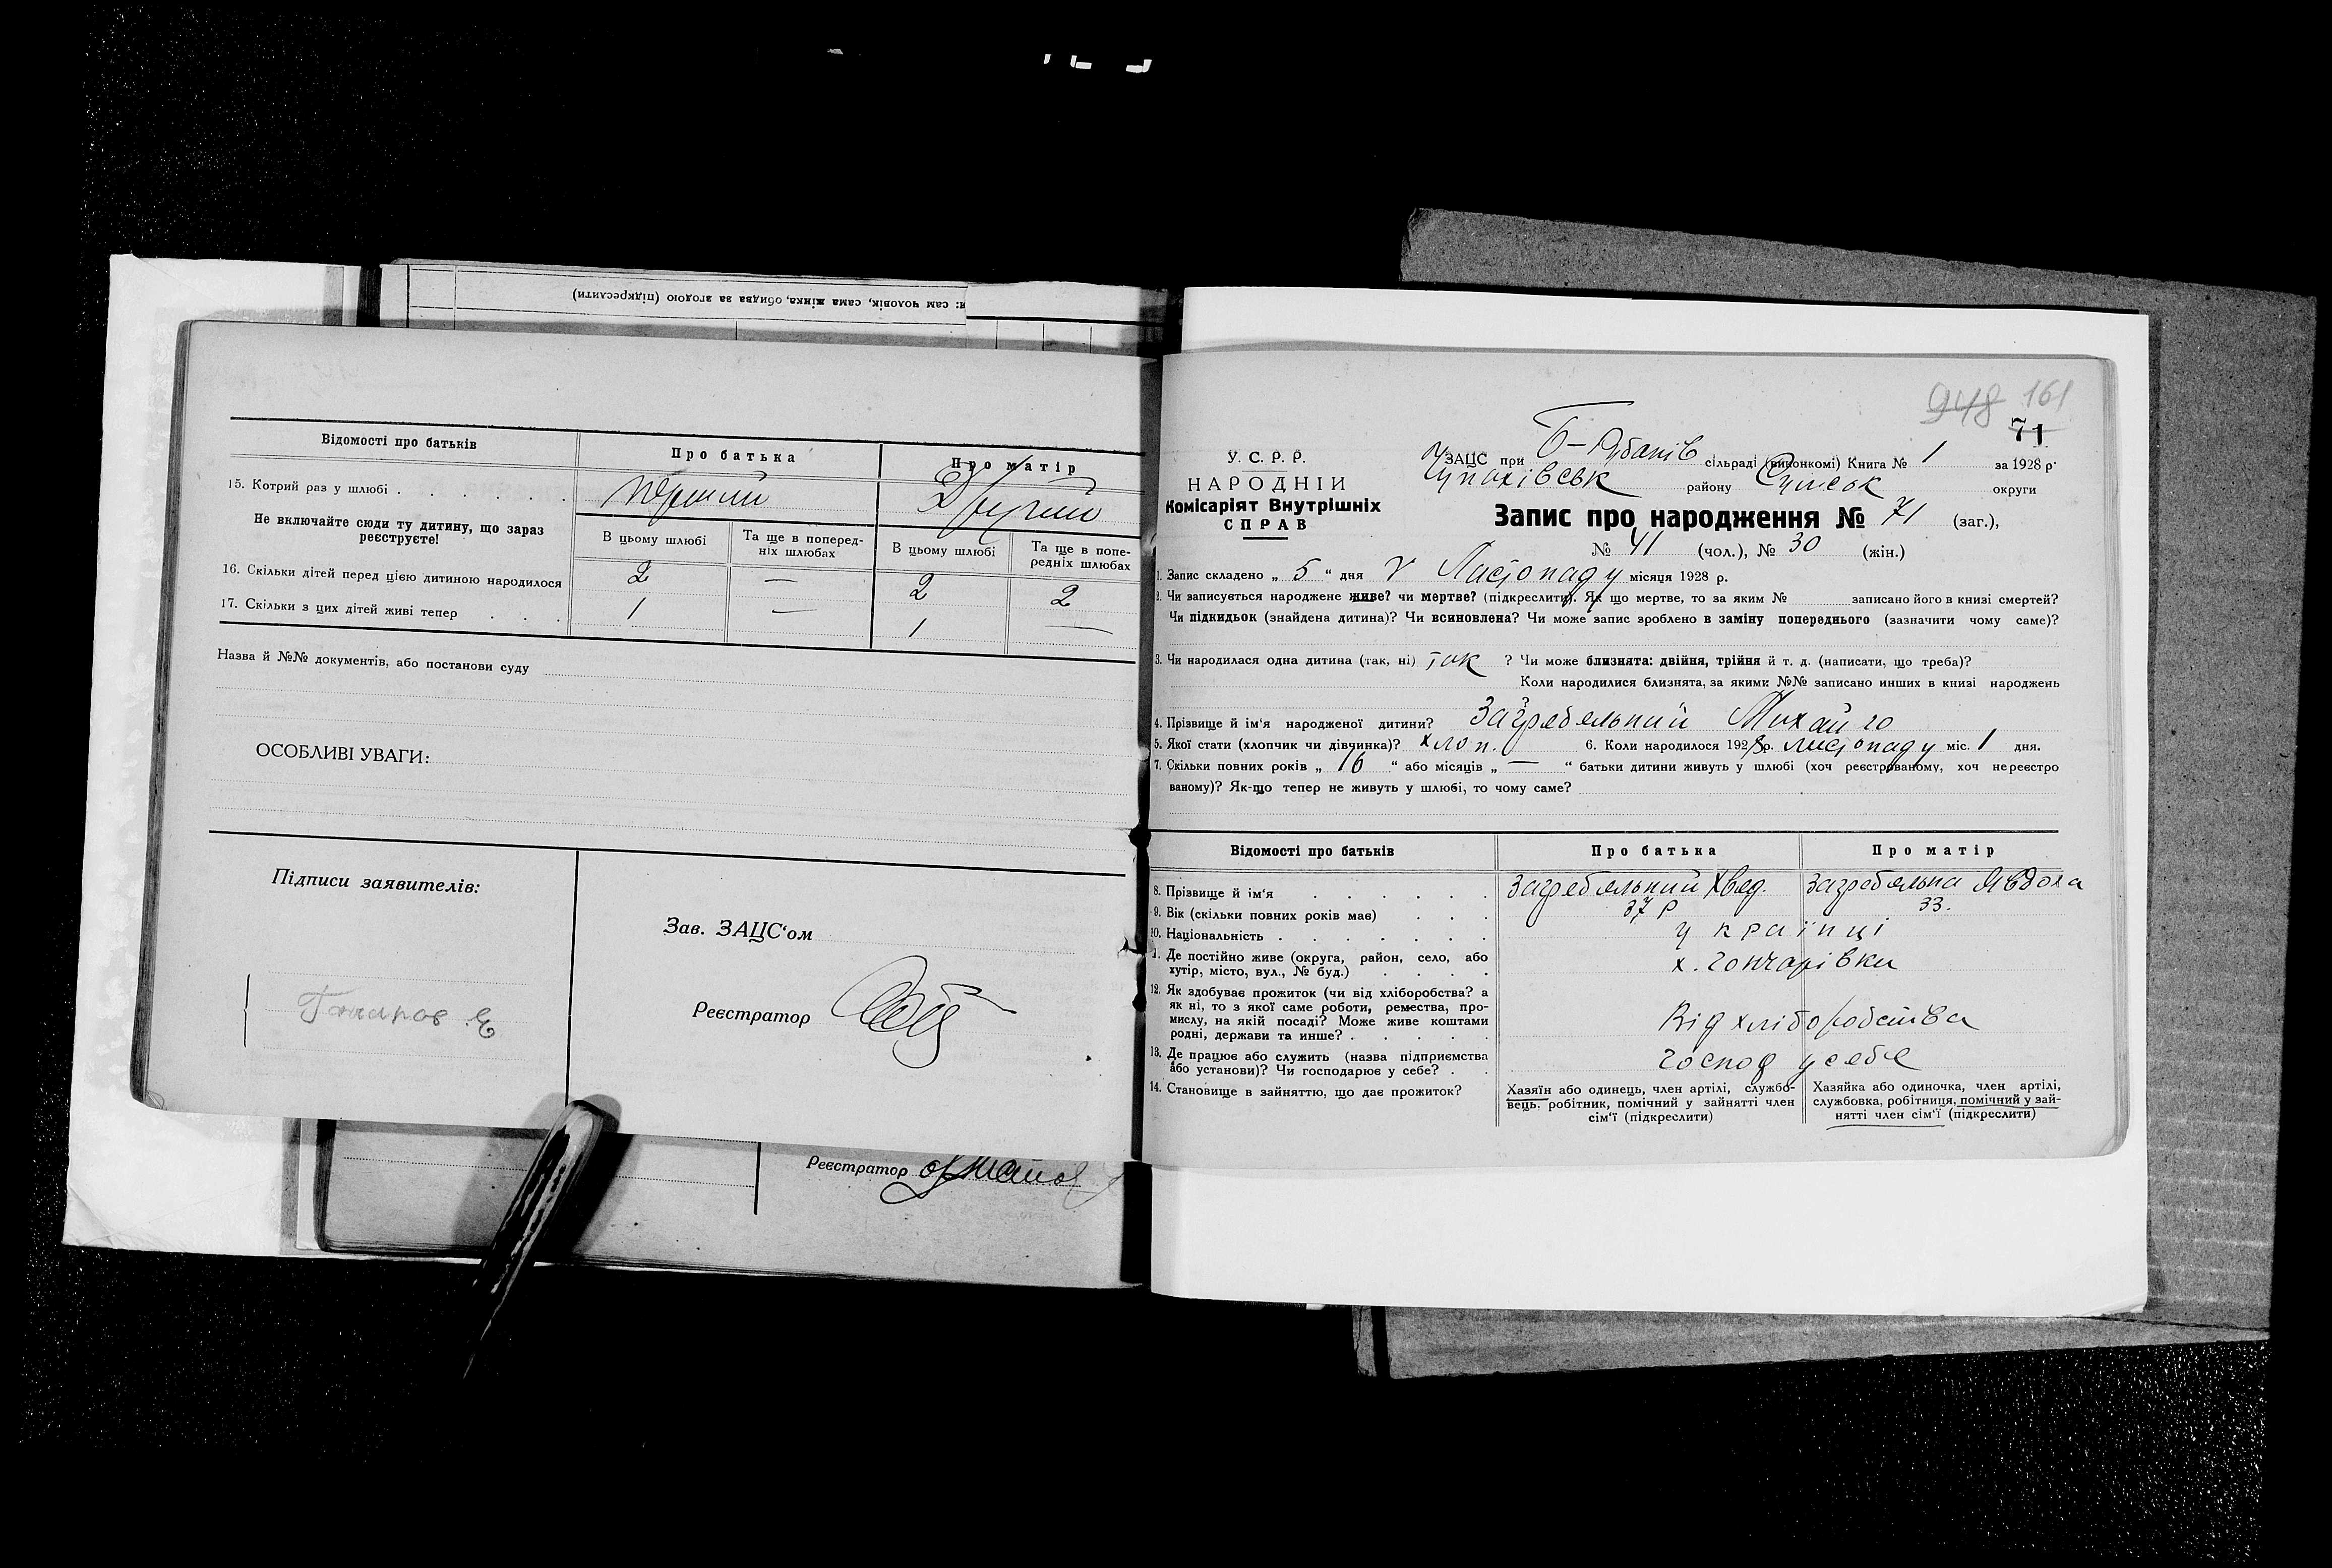 и: сам чоловік, сама жінка, обидва за згодою (підкреслити)
Відомості про батьків
Про батька
Про матір
15. Котрий раз у шлюбі . . . . . . .
перший
Другий
Не включайте сюди ту дитину, що зараз
реєструєте!
В цьому шлюбі
Та ще в поперед-
ніх шлюбах
В цьому шлюбі
Та ще в попе-
редніх шлюбах
16. Скільки дітей перед цією дитиною народилося
2 — 2 2
17. Скільки з цих дітей живі тепер . . .
1 — 1 —
Назва й №№ документів, або постанови суду
ОСОБЛИВІ УВАГИ:
Підписи заявителів:
Зав. ЗАЦС'ом
Реєстратор
Реєстратор
948 161
71
У. С. Р. Р.
НАРОДНІЙ
Комісаріят Внутрішніх
СПРАВ
ЗАЦС при Б- сільраді (виконкомі) Книга № 1 за 1928 р.
Чупахівськ району Сумськ округи
Запис про народження № 71 (заг.),
№ 41 (чол.), № 30 (жін.)
1. Запис складено „ 5 “ дня Листопаду місяця 1928 р.
2. Чи записується народжене живе? чи мертве? (підкреслити). Як що мертве, то за яким № записано його в книзі смертей?
Чи підкидьок (знайдена дитина)? Чи всиновлена? Чи може запис зроблено в заміну попереднього (зазначити чому саме)?
3. Чи народилася одна дитина (так, ні) так ? Чи може близнята: двійня, трійня й т. д. (написати, що треба)?
Коли народилися близнята, за якими №№ записано инших в книзі народжень
4. Прізвище й ім'я народженої дитини? Загребельний Михайло
5. Якої стати (хлопчик чи дівчинка)? хлоп. 6. Коли народилося 1928 р. листопаду міс. 1 дня.
7. Скільки повних років „ 16 “ або місяців „ — “ батьки дитини живуть у шлюбі (хоч реєстрованому, хоч нереєстро
ваному)? Як-що тепер не живуть у шлюбі, то чому саме?
Відомості про батьків
Про батька
Про матір
8. Прізвище й ім'я . . . . . .
Загребельний Хвед.
Загребельна Явдоха
9. Вік (скільки повних років має) . . .
37 р
33.
10. Національність . . . . . . .
українці
11. Де постійно живе (округа, район, село, або
хутір, місто, вул., № буд.) . . . .
х. Гончарівка
12. Як здобуває прожиток (чи від хліборобства? а
як ні, то з якої саме роботи, ремества, про-
мислу, на якій посаді? Може живе коштами
родні, держави та инше? . . . . .
Від хліборобства
13. Де працює або служить (назва підприємства
або установи)? Чи господарює у себе? . .
господ у себе
14. Становище в зайняттю, що дає прожиток?
Хазяїн або одинець, член артілі, службо-
вець, робітник, помічний у зайнятті член
сім'ї (підкреслити)
Хазяйка або одиночка, член артілі,
службовка, робітниця, помічний у зай-
нятті член сім'ї (підкреслити)